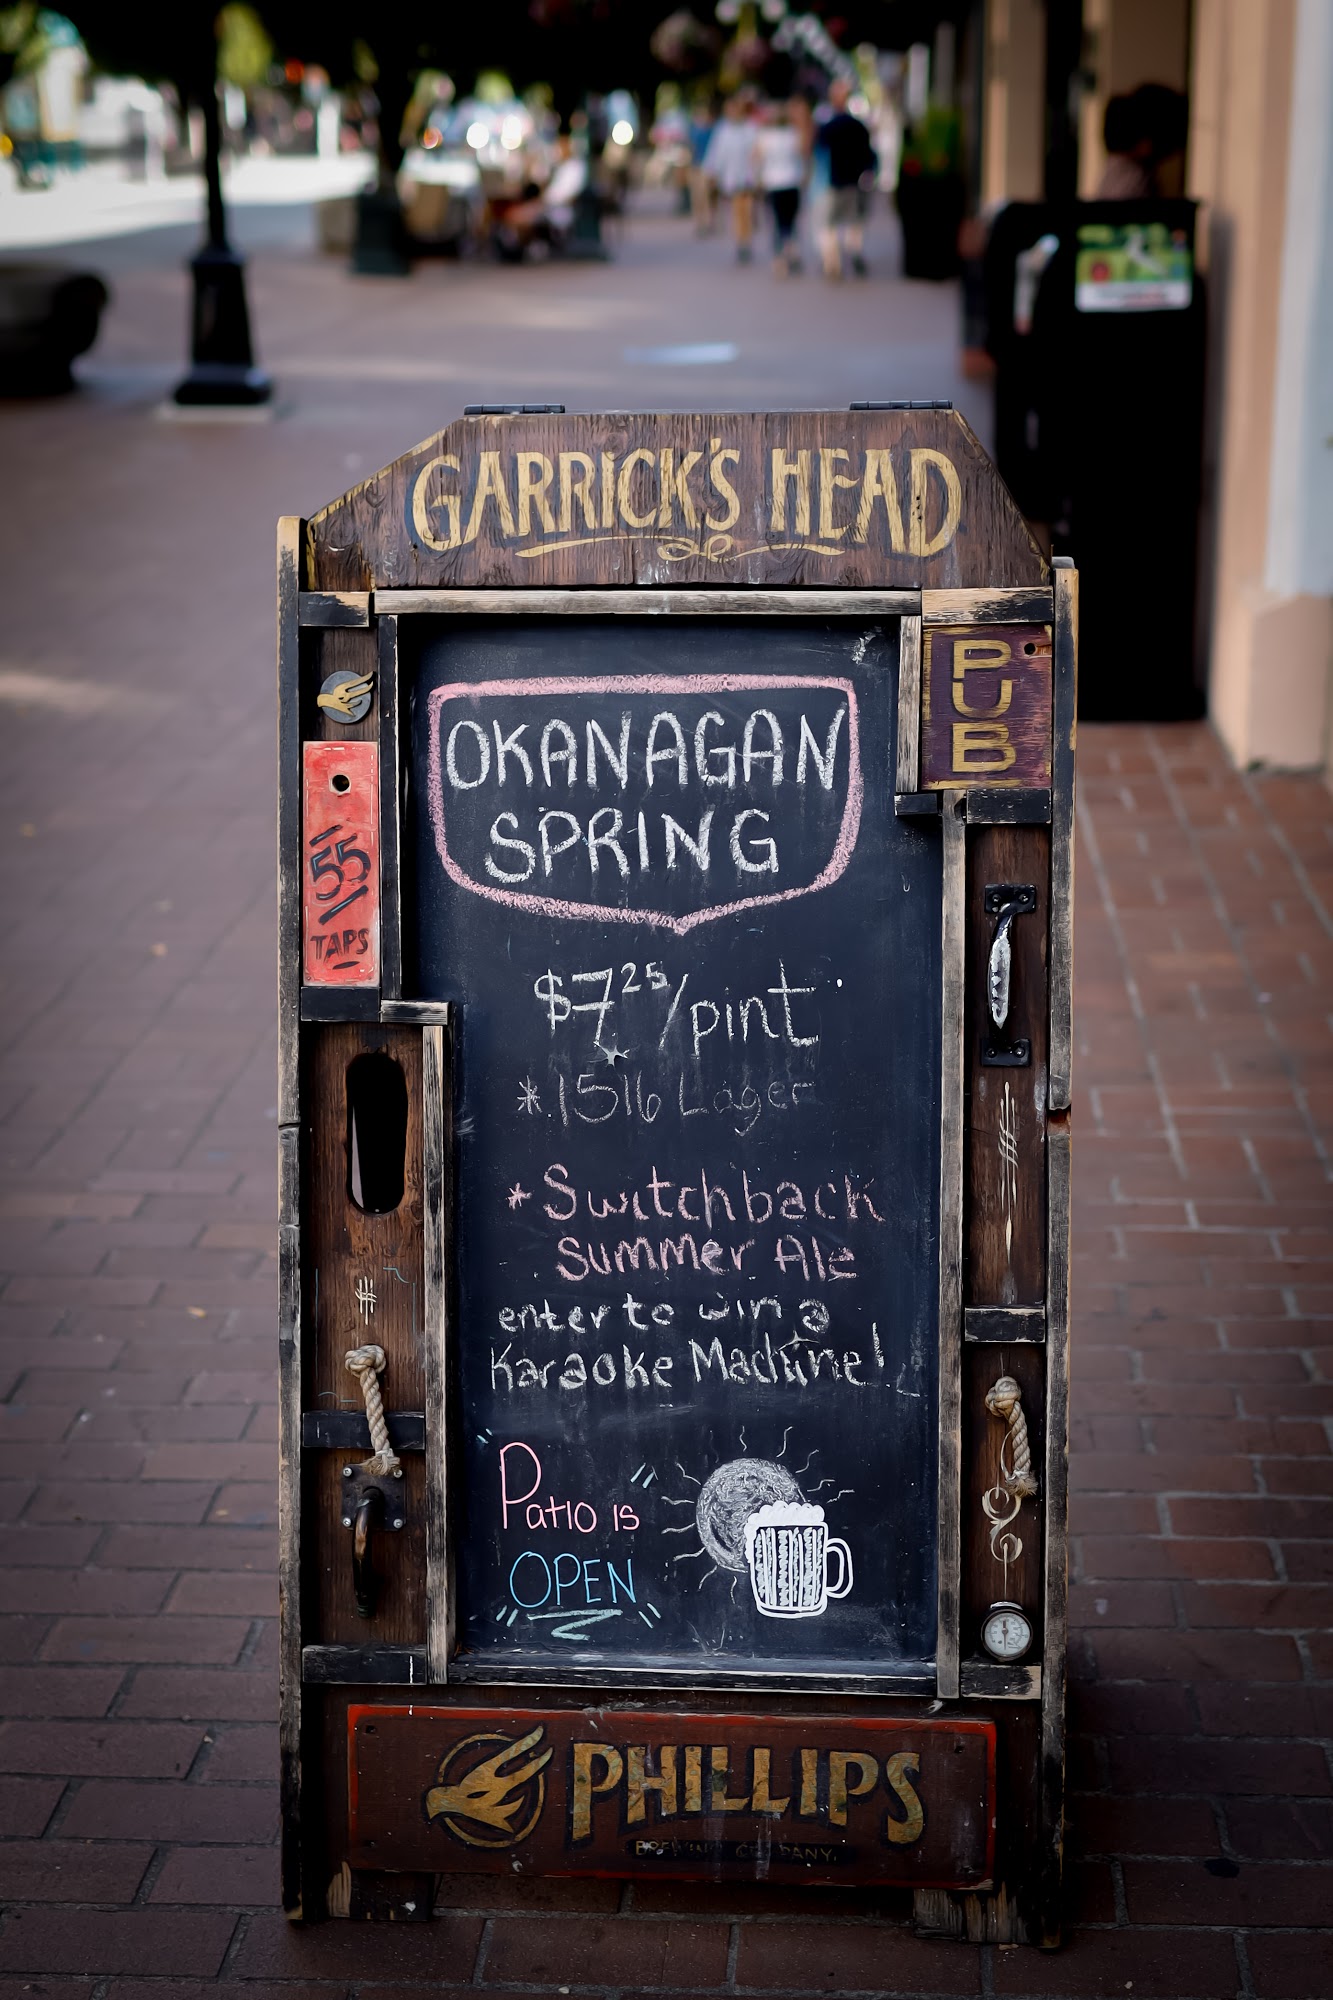 GARRICK'S HEAD
PUB
55
TAPS
OKANAGAN
SPRING
$7.25/pint
*1516 Lager
*Switchback
Summer Ale
enter to win a
Karaoke Machine!
Patio is
OPEN
PHILLIPS
BREWING COMPANY.